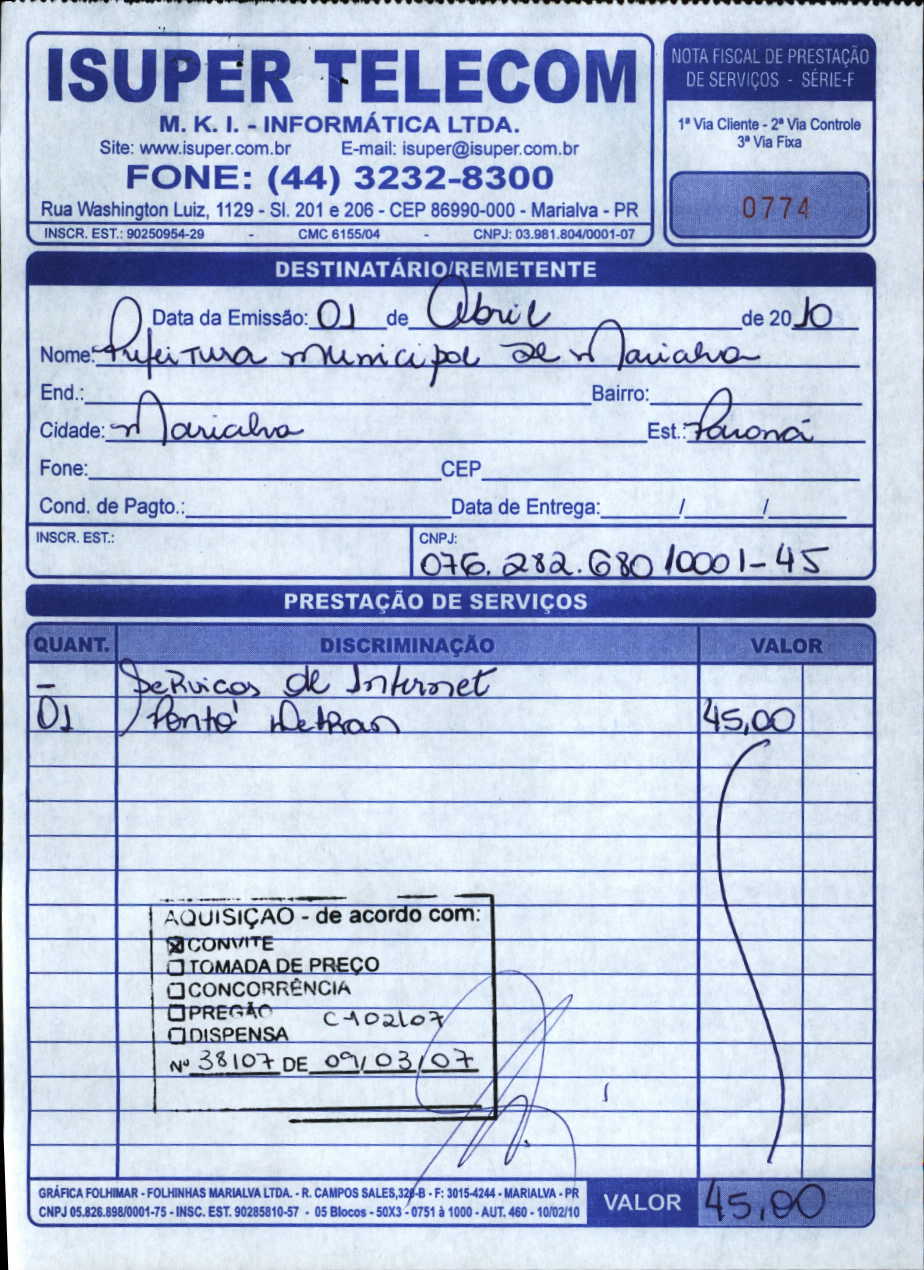 ISUPER TELECOM
M. K. I. - INFORMÁTICA LTDA.
Site: www.isuper.com.br E-mail: isuper@isuper.com.br
FONE: (44) 3232-8300
Rua Washington Luiz, 1129 - Sl. 201 e 206 - CEP 86990-000 - Marialva - PR
INSCR. EST.: 90250954-29 - CMC 6155/04 - CNPJ: 03.981.804/0001-07
NOTA FISCAL DE PRESTAÇÃO
DE SERVIÇOS - SÉRIE-F
1ª Via Cliente - 2ª Via Controle
3ª Via Fixa
0774
DESTINATÁRIO/REMETENTE
Data da Emissão: 01 de Abril de 2010
Nome: Prefeitura Municipal de Marialva
End.: Bairro:
Cidade: Marialva Est.: Paraná
Fone: CEP
Cond. de Pagto.: Data de Entrega: / /
INSCR. EST.: CNPJ:
076.282.680/0001-45
PRESTAÇÃO DE SERVIÇOS
QUANT. DISCRIMINAÇÃO VALOR
- Serviços de Internet
01 Ponto Detran 45,00
AQUISIÇÃO - de acordo com:
☒ CONVITE
☐ TOMADA DE PREÇO
☐ CONCORRÊNCIA
☐ PREGÃO C-102/07
☐ DISPENSA
Nº 38/07 DE 09/03/07
GRÁFICA FOLHIMAR - FOLHINHAS MARIALVA LTDA. - R. CAMPOS SALES, 328-B - F: 3015-4244 - MARIALVA - PR
CNPJ 05.826.898/0001-75 - INSC. EST. 90285810-57 - 05 Blocos - 50X3 - 0751 à 1000 - AUT. 460 - 10/02/10
VALOR 45,00